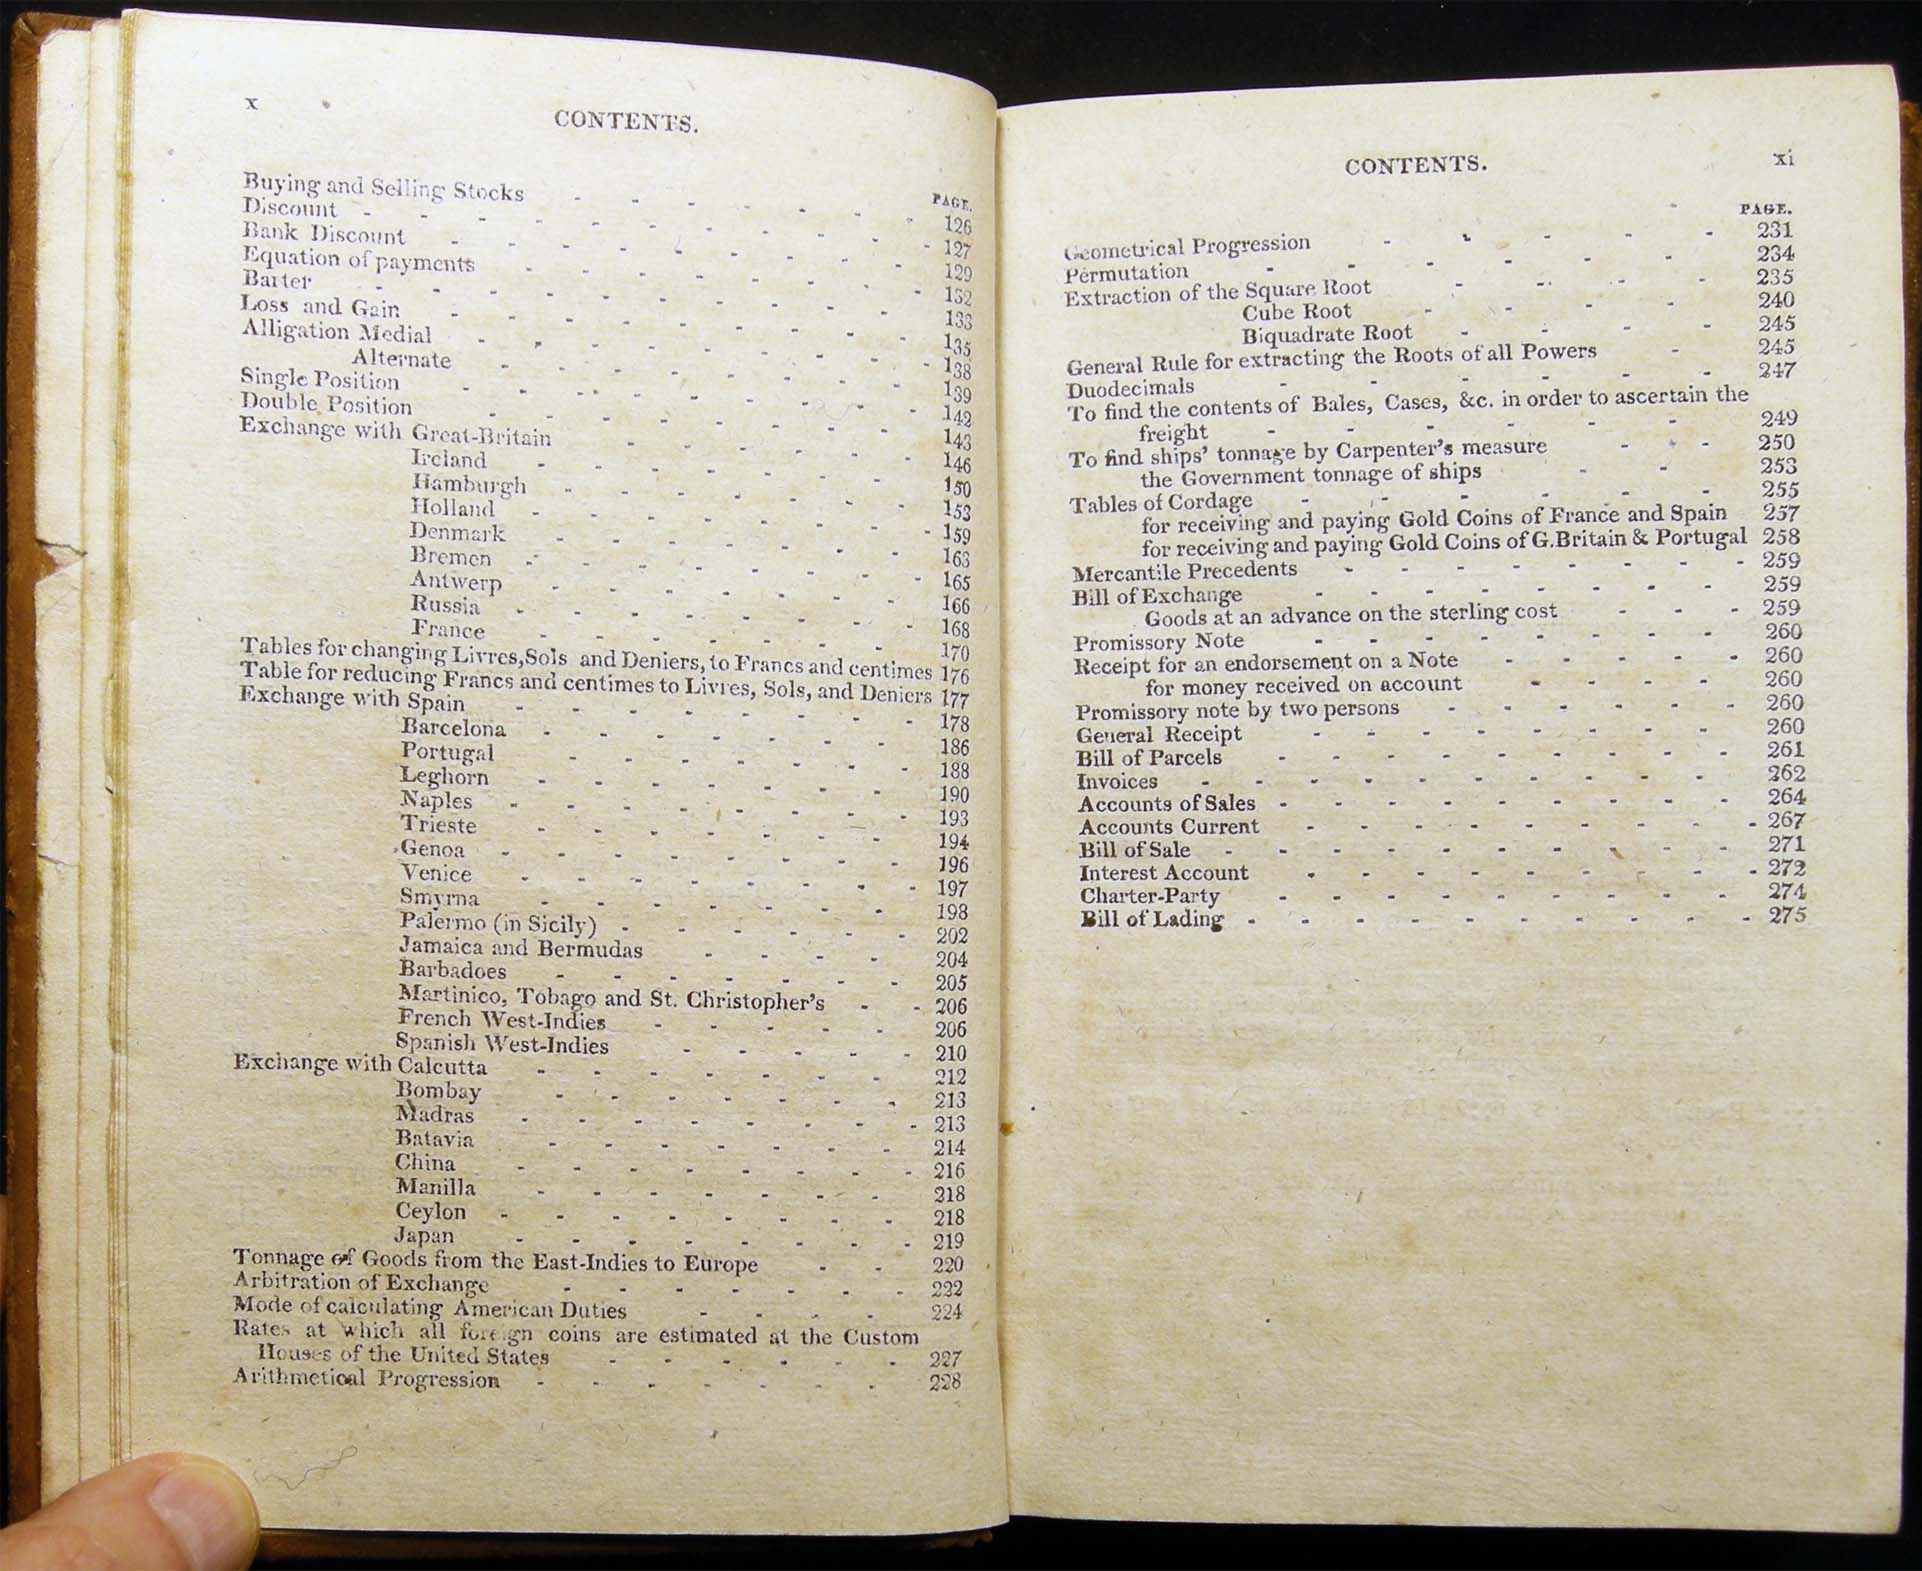 x
CONTENTS.
PAGE.
Buying and Selling Stocks - - - - - - 126
Discount - - - - - - - - - 127
Bank Discount - - - - - - - - 129
Equation of payments - - - - - - - 132
Barter - - - - - - - - - 133
Loss and Gain - - - - - - - - 135
Alligation Medial - - - - - - - - 138
Alternate - - - - - - - 139
Single Position - - - - - - - - 142
Double Position - - - - - - - - 143
Exchange with Great-Britain - - - - - - 146
Ireland - - - - - - - 150
Hamburgh - - - - - - 153
Holland - - - - - - - 159
Denmark - - - - - - 163
Bremen - - - - - - - 165
Antwerp - - - - - - 166
Russia - - - - - - - 168
France - - - - - - - 170
Tables for changing Livres, Sols and Deniers, to Francs and centimes 176
Table for reducing Francs and centimes to Livres, Sols, and Deniers 177
Exchange with Spain - - - - - - - - 178
Barcelona - - - - - - - 186
Portugal - - - - - - - 188
Leghorn - - - - - - - 190
Naples - - - - - - - - 193
Trieste - - - - - - - 194
Genoa - - - - - - - - 196
Venice - - - - - - - - 197
Smyrna - - - - - - - 198
Palermo (in Sicily) - - - - - - 202
Jamaica and Bermudas - - - - 204
Barbadoes - - - - - - - 205
Martinico, Tobago and St. Christopher's - - 206
French West-Indies - - - - - 206
Spanish West-Indies - - - - - 210
Exchange with Calcutta - - - - - - - 212
Bombay - - - - - - - 213
Madras - - - - - - - - 213
Batavia - - - - - - - 214
China - - - - - - - - 216
Manilla - - - - - - - 218
Ceylon - - - - - - - - 218
Japan - - - - - - - - 219
Tonnage of Goods from the East-Indies to Europe - - 220
Arbitration of Exchange - - - - - - - 222
Mode of calculating American Duties - - - - 224
Rates at which all foreign coins are estimated at the Custom
Houses of the United States - - - - - - 227
Arithmetical Progression - - - - - - - 228
CONTENTS.
xi
PAGE.
Geometrical Progression - - - - - 231
Permutation - - - - - - 234
Extraction of the Square Root - - - - 235
Cube Root - - - - 240
Biquadrate Root - - - - 245
General Rule for extracting the Roots of all Powers - 245
Duodecimals - - - - - - 247
To find the contents of Bales, Cases, &c. in order to ascertain the
freight - - - - - - 249
To find ships' tonnage by Carpenter's measure - - - 250
the Government tonnage of ships - - 253
Tables of Cordage - - - - - - 255
for receiving and paying Gold Coins of France and Spain 257
for receiving and paying Gold Coins of G.Britain & Portugal 258
Mercantile Precedents - - - - - - - - 259
Bill of Exchange - - - - - - - 259
Goods at an advance on the sterling cost - - - 259
Promissory Note - - - - - - - - 260
Receipt for an endorsement on a Note - - - - - 260
for money received on account - - - - 260
Promissory note by two persons - - - - - - 260
General Receipt - - - - - - - - 260
Bill of Parcels - - - - - - - - - 261
Invoices - - - - - - - - - - 262
Accounts of Sales - - - - - - - - - 264
Accounts Current - - - - - - - - - 267
Bill of Sale - - - - - - - - - - 271
Interest Account - - - - - - - - - 272
Charter-Party - - - - - - - - - 274
Bill of Lading - - - - - - - - - - 275